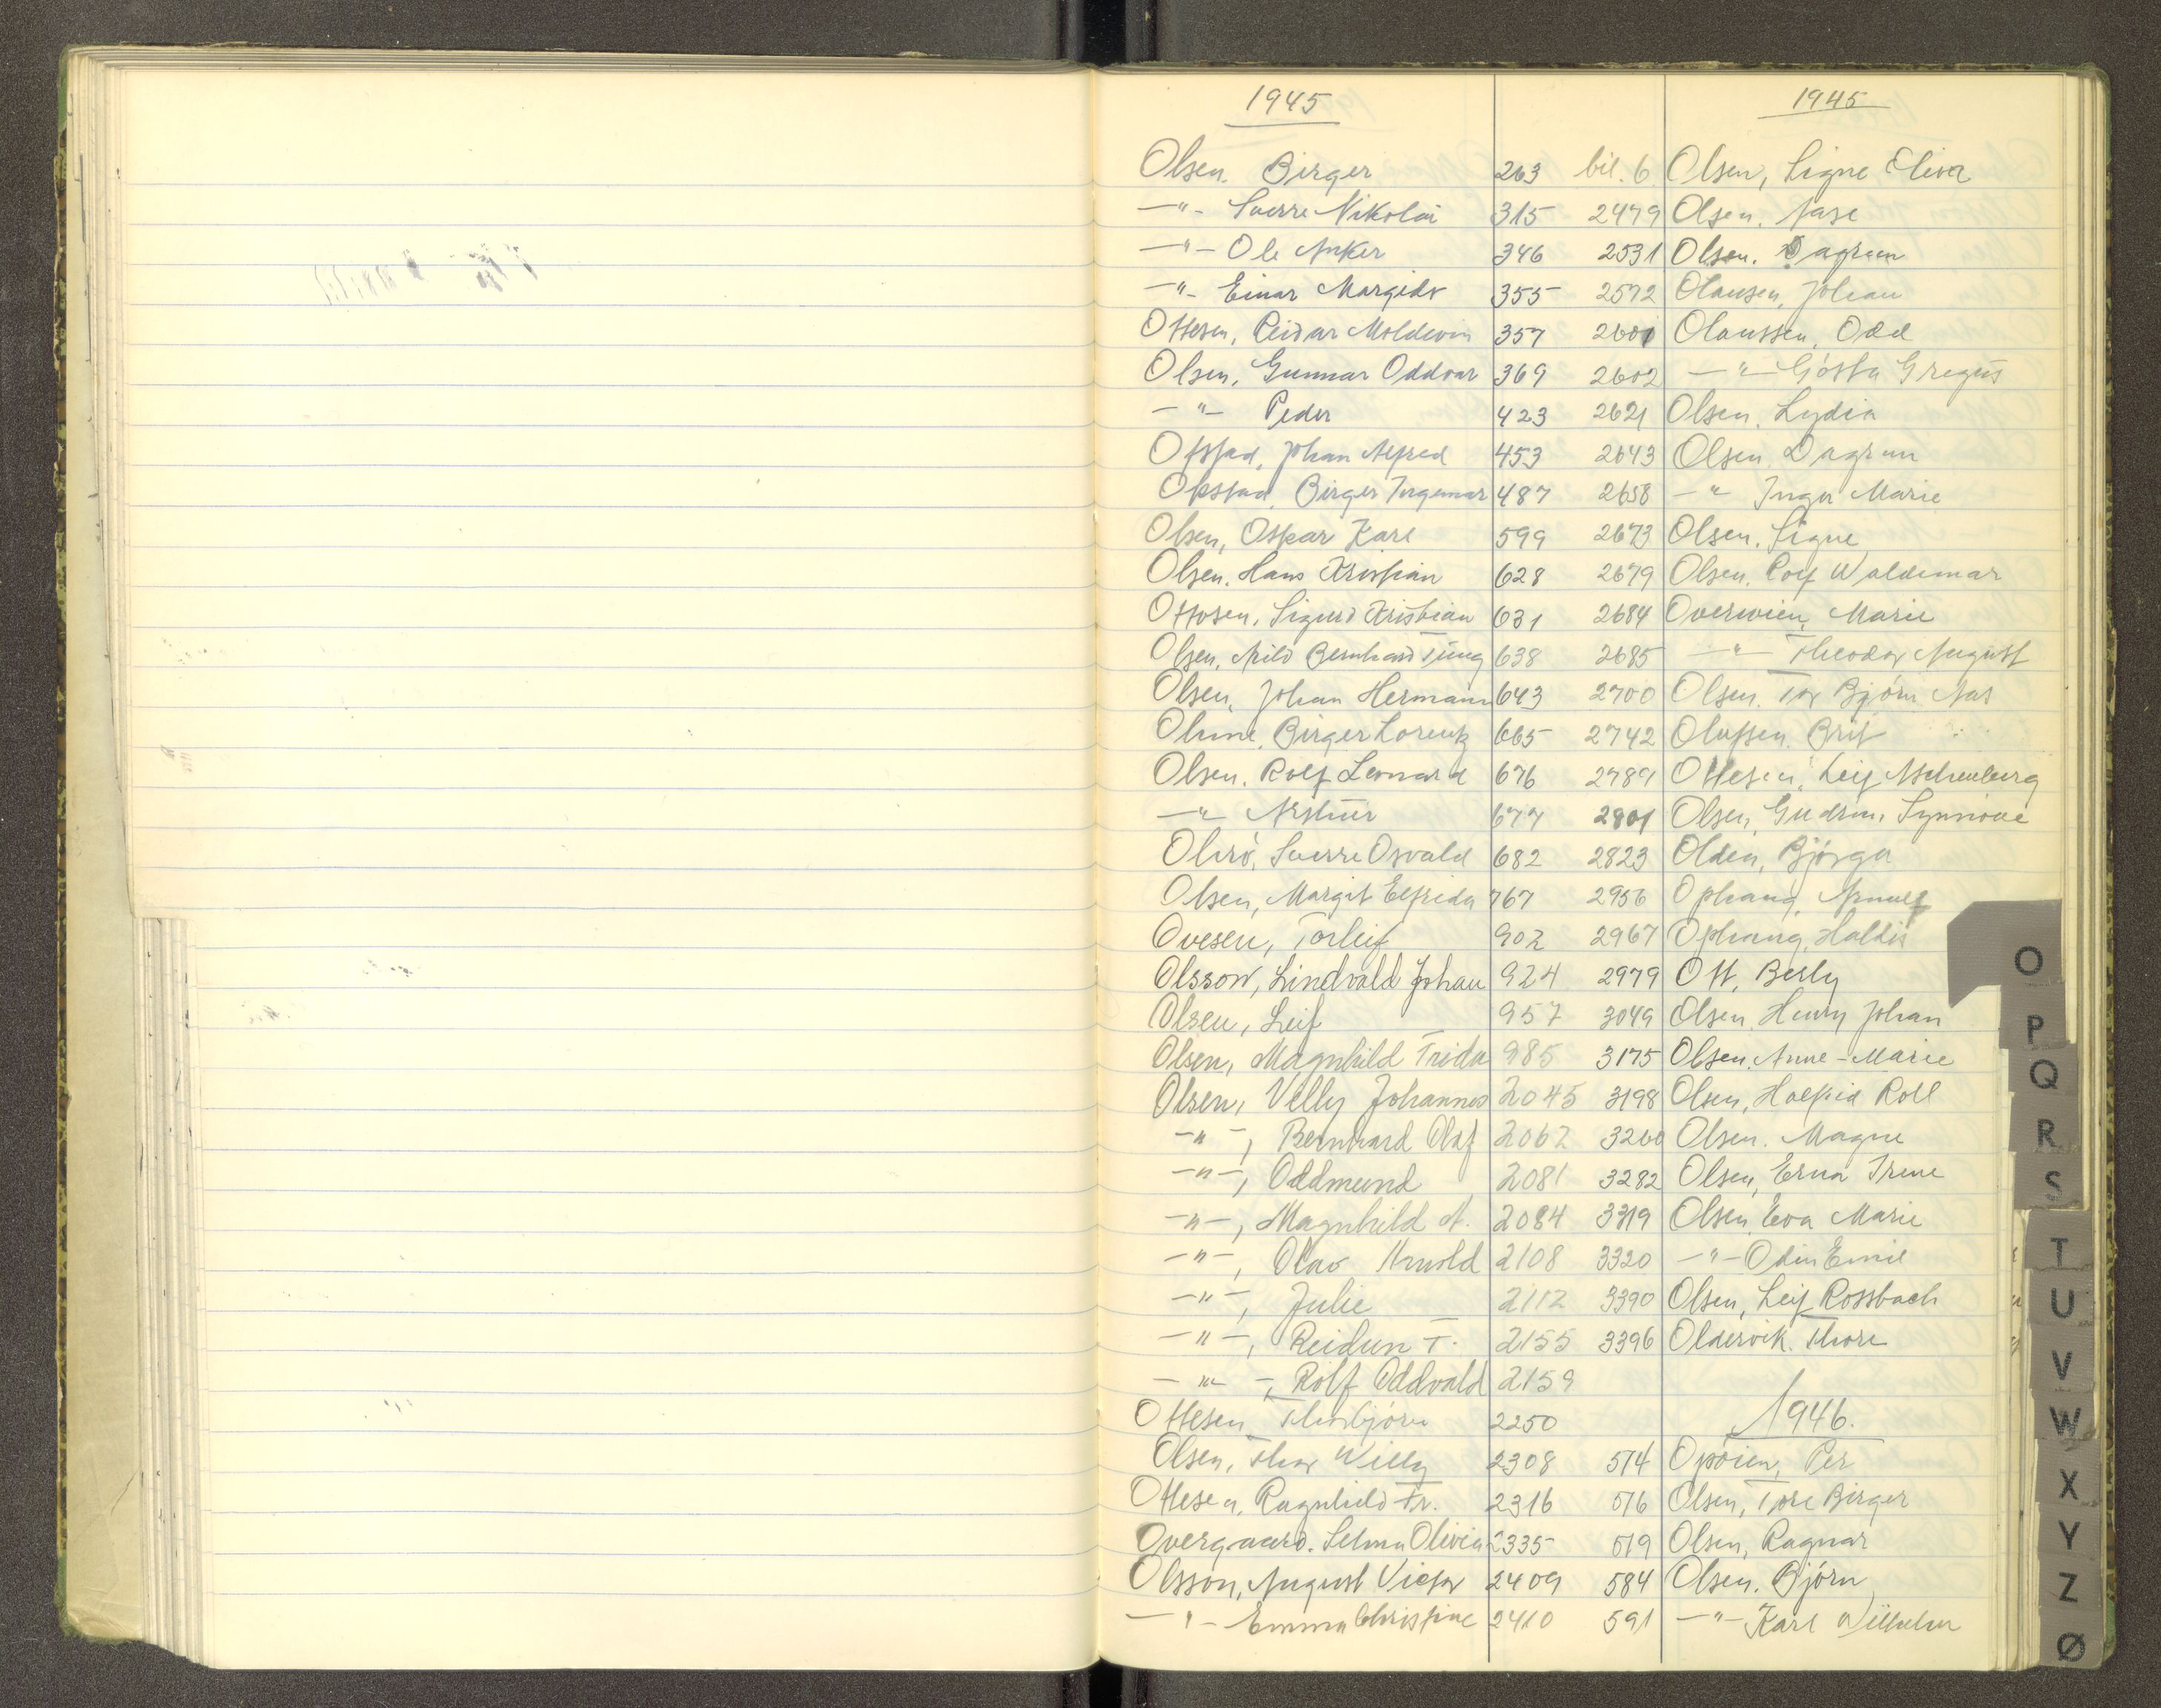 1945
Olsen. Birger 263
—"- Sverre Nikolai 315
—"- Ole Anker 346
—"- Einar Margido 355
Ottesen, Reidar Moldevin 357
Olsen, Gunnar Oddvar 369
—"- Peder 423
Ofstad, Johan Alfred 453
Okstad, Birger Ingemar 487
Olsen, Oskar Karl 599
Olsen. Hans Kristian 628
Ottosen, Sigurd Kristian 631
Olsen, Arild Bernhard 638
Olsen, Johan Hermann 643
Birger Lorentz 665
Olsen. Rolf Leonard 676
—"- Arthur 677
Sverre Osvald 682
Olsen, Margit Elfrida 767
Ovesen, Torleif 902
Olsson, Lindvald Johan 924
Olsen, Leif 957
Olsen, Magnhild Frida 985
Olsen, Villy Johannes 2045
—"-, Bernhard Olaf 2062
—"-, Oddmund 2081
—"-, Magnhild A. 2084
—"-, Olav Arnold 2108
—"-, Julie 2112
—"-, Reidun T. 2155
—"-, Rolf Oddvald 2159
Ottesen Thorbjörn 2250
Olsen, Thor Willy 2308
Ottesen, Ragnhild Fr. 2316
Overgaard. Selma Olivia 2335
Olsson, August Victor 2409
—"- Emma Christine 2410
1945
bil. 6 Olsen, Signe Elise
2479 Olsen. Aase
2531 Olsen. Dagrun
2572 Olausen, Johan
2601 Olaussen, Odd
2602 —"- Gösta Gregus
2621 Olsen, Lydia
2643 Olsen. Dagrun
2658 —"- Inga Marie
2673 Olsen. Signe
2679 Olsen. Rolf Waldemar
2684 Overwien, Marie
2685 —"- Theodor August
2700 Olsen. Tor Björn Aas
2742 Olufsen. Brit
2789 Ottesen, Leif Aschenberg
2801 Olsen, Gudrun Synnöve
2823 Olden, Bjørga
2956 Ophaug, Arnulf
2967 Ophaug, Haldis
2979 Ott, Berly
3049 Olsen, Henry Johan
3175 Olsen. Anne-Marie
3198 Olsen, Halfrid Roll
3260 Olsen. Magne
3282 Olsen, Erna Irene
3319 Olsen, Eva Marie
3320 —"- Odin Emil
3390 Olsen, Leif Rossbach
3396 Oldervik. Thore
1946.
514 Opöien, Per
516 Olsen, Tore Birger
519 Olsen, Ragnar
584 Olsen. Björn
591 —"- Karl Wilhelm
O
P
Q
R
S
T
U
V
W
X
Y
Z
Ø